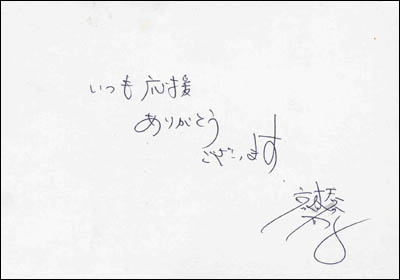 いつも応援
ありがとう
ございます